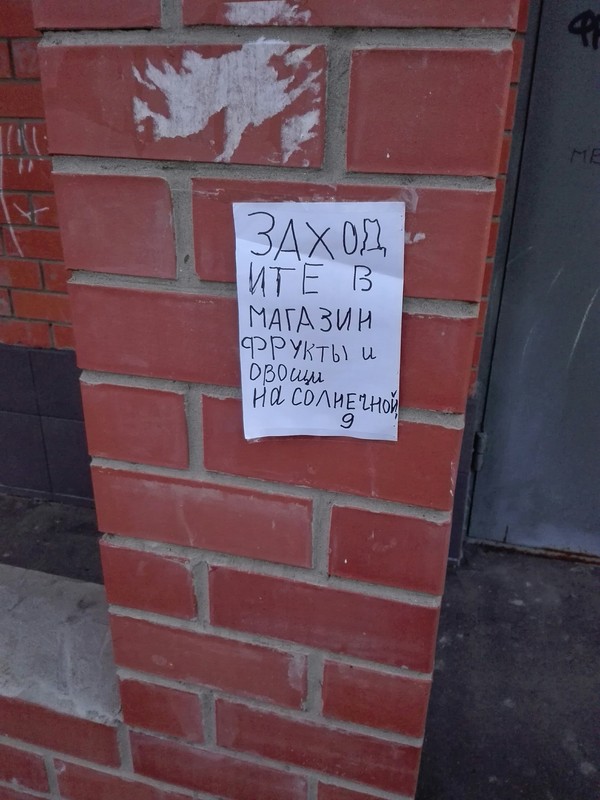 ЗАХОД
ИТЕ В
МАГАЗИН
ФРУКТЫ и
ОВОЩИ
НА СОЛНЕЧНОЙ,
9